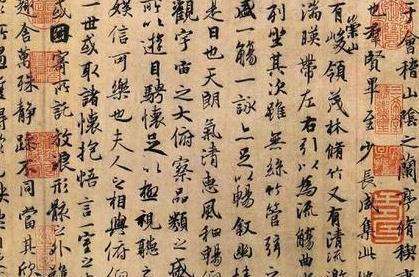 會稽山陰之蘭亭脩稧
也羣賢畢至少長咸集此地
崇山
有峻領茂林脩竹又有清流激
湍暎帶左右引以為流觴曲
列坐其次雖無絲竹管弦之
盛一觴一詠亦足以暢敘幽情
是日也天朗氣清惠風和暢
觀宇宙之大俯察品類之盛
所以遊目騁懷足以極視聽
娛信可樂也夫人之相與俯仰
一世或取諸懷抱悟言一室之
或因寄所託放浪形骸之外
舍萬殊靜躁不同當其欣